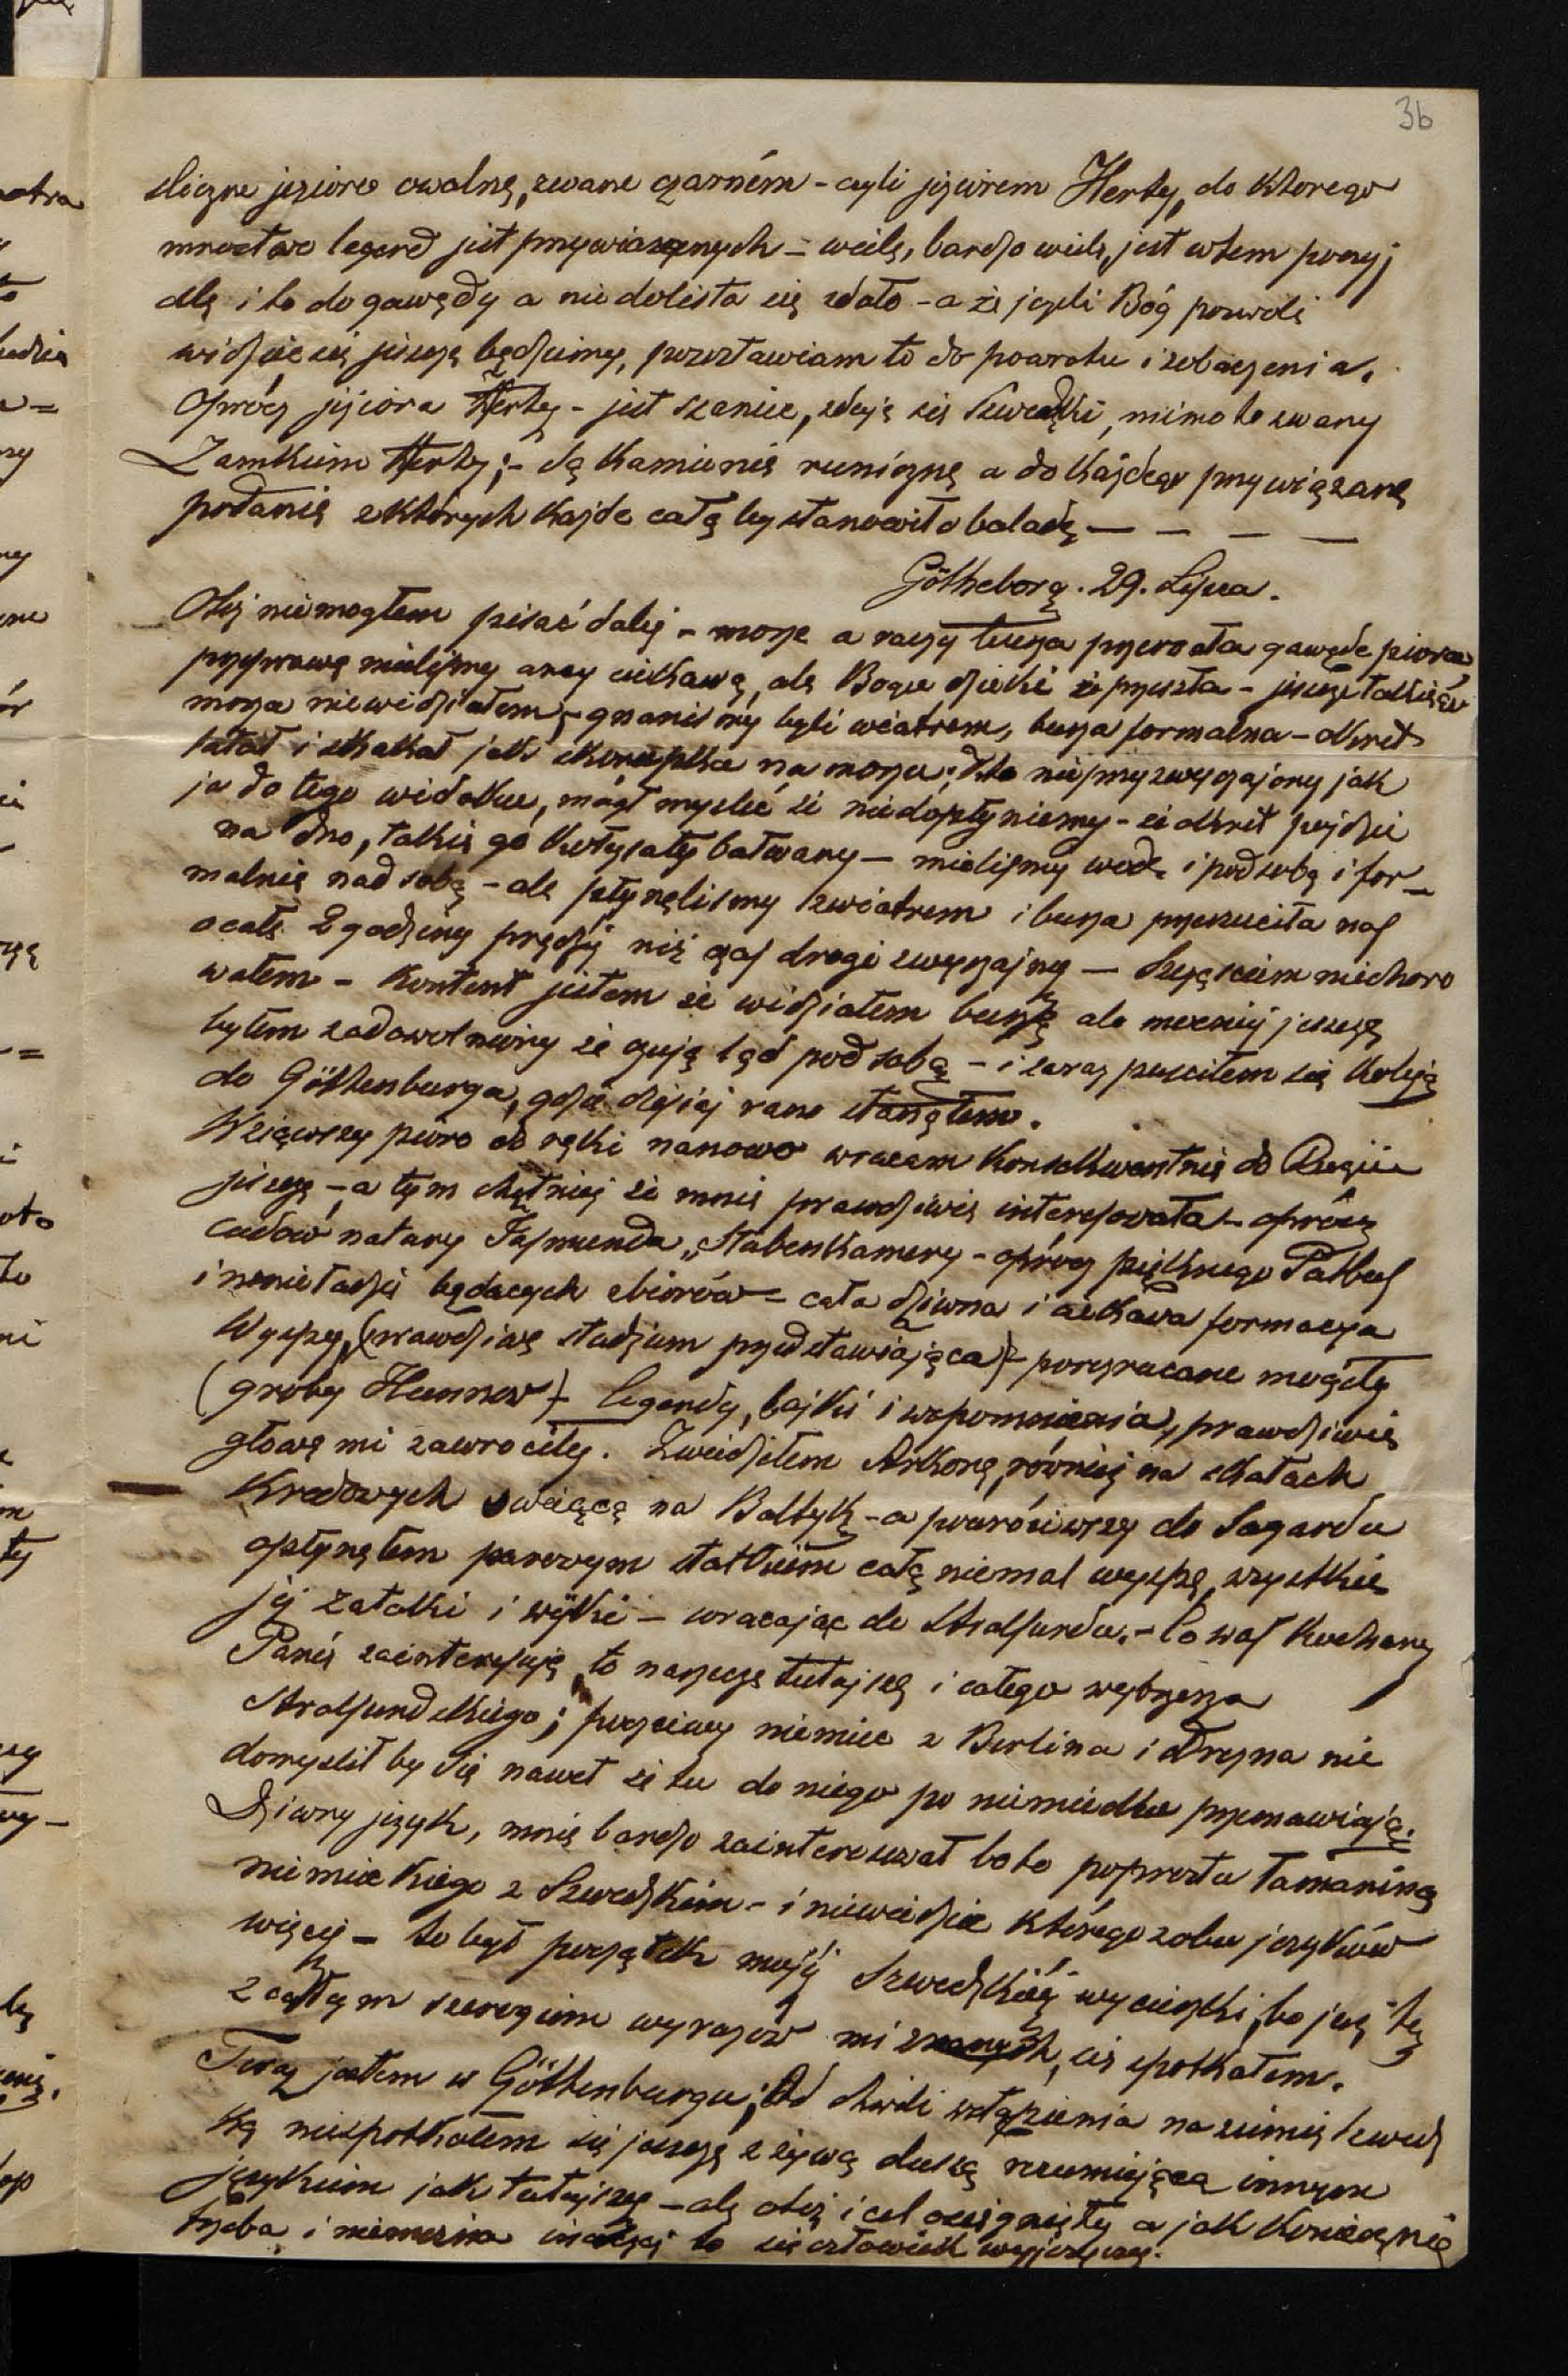 36
śliczne jezioro owalne, zwane czarném - czyli jeziorem Herty, do ktorego
mnóstwo legend jest przywiązanych - wiele, bardzo wiele, jest w tem poezyj
ale i to do gawędy a nie do listu się zdało - a że jeżeli Bóg pozwoli
widzieć się jeszcze będziemy, pozostawiam to do powrotu i zobaczenia.
Oprócz jeziora Herty - jest szaniec, zdaje się Szwedzki, mimo to zwany
Zamkiem Herty; - są kamienie runiczne a do każdego przywiązane
podanie z których każde całą by stanowiło baladę — — — —
Götheborg. 29. Lipca.
Otóż nie mogłem pisać dalej - morze a raczej burza przerwała gawędę piórem
przeprawę mieliśmy arcy ciekawą, ale Bogu dzięki że przeszła - jeszcze takiego
morza nie widziałem, - gnani my byli wiatrem, burza formalna - okręt
latał i skakał jak skorupka na morzu; kto nie przyzwyczajony jak
ja do tego widoku, mógł myśleć że nie dopłyniemy - że okręt pójdzie
na dno, takie go kołysały bałwany — mieliśmy wodę i pod sobą i for-
malnie nad sobą - ale płynęlismy z wiatrem i burza przerzuciła nas
o całe 2 godziny prędzej niż czas drogi zwyczajny — Szczęściem nie choro
wałem - kontent jestem że widziałem burzę ale mocniej jeszcze
byłem zadowolniony że czuję ląd pod sobą - i zaraz pusciłem się koleją
do Göthenburga, gdzie dzisiaj rano stanąłem.
Wziąwszy pióro do ręki nanowo wracam konsekwentnie do Rugii
jeszcze - a tym chętniej że mnie prawdziwie interesowała - oprócz
cudów natury Jasmunda, Stubenkamery - oprócz pięknego Putbus
i w nieładzie będących zbiorów - cała dziwna i ciekawa formacya
Wyspy, (prawdziwe studjum przedstawiająca) - porozrzucane mogiły
(groby Hunnow) - legendy, bajki i wspomnienia, prawdziwie
głowę mi zawrociły. Zwiedziłem Arkonę, równiej na skałach
Kredowych swiącą na Bałtyk - a powróciwszy do Sagardu
opłynąłem parowym statkiem całą niemal wyspę, wszystkie
jej zatoki i - wracając do Stralsundu. - Co was Kochany
Panie zainteresuje, to narzecze tutejsze i całego wybrzeża
Stralsundskiego; poczciwy niemiec z Berlina i Drezna nie
domyslił by się nawet że tu do niego po niemiecku przemawiają.
Dziwny język, mnie bardzo zainteresował bo to poprostu łamanina
niemieckiego z Szwedzkim - i niewiedzieć którego z obu języków
więcej - to był początek mojej Szwedzkiéj wycieczki, bo już tu
z całym szeregiem wyrazów mi znanych, się spotkałem.
Teraz jestem w Göthenburgu; Od chwili wstąpienia na ziemię szwedz
ką nie spotkałem się jeszcze z żywą duszą rozumiejącą innym
językiem jak tutejszy - ale otóż i cel osięgnięty a jak koniecznie
trzeba i niemożna inaczej to się człowiek wyjęzyczy.